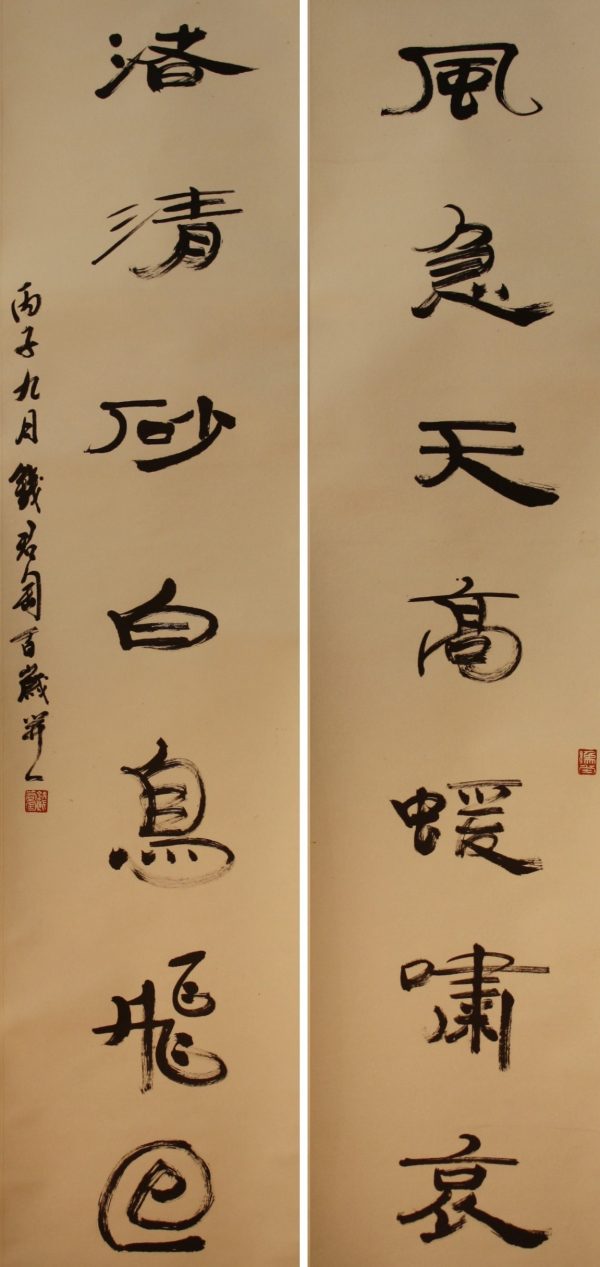 風急天高蝯嘯哀
渚清砂白鳥飛回
丙子九月錢君匋百歲